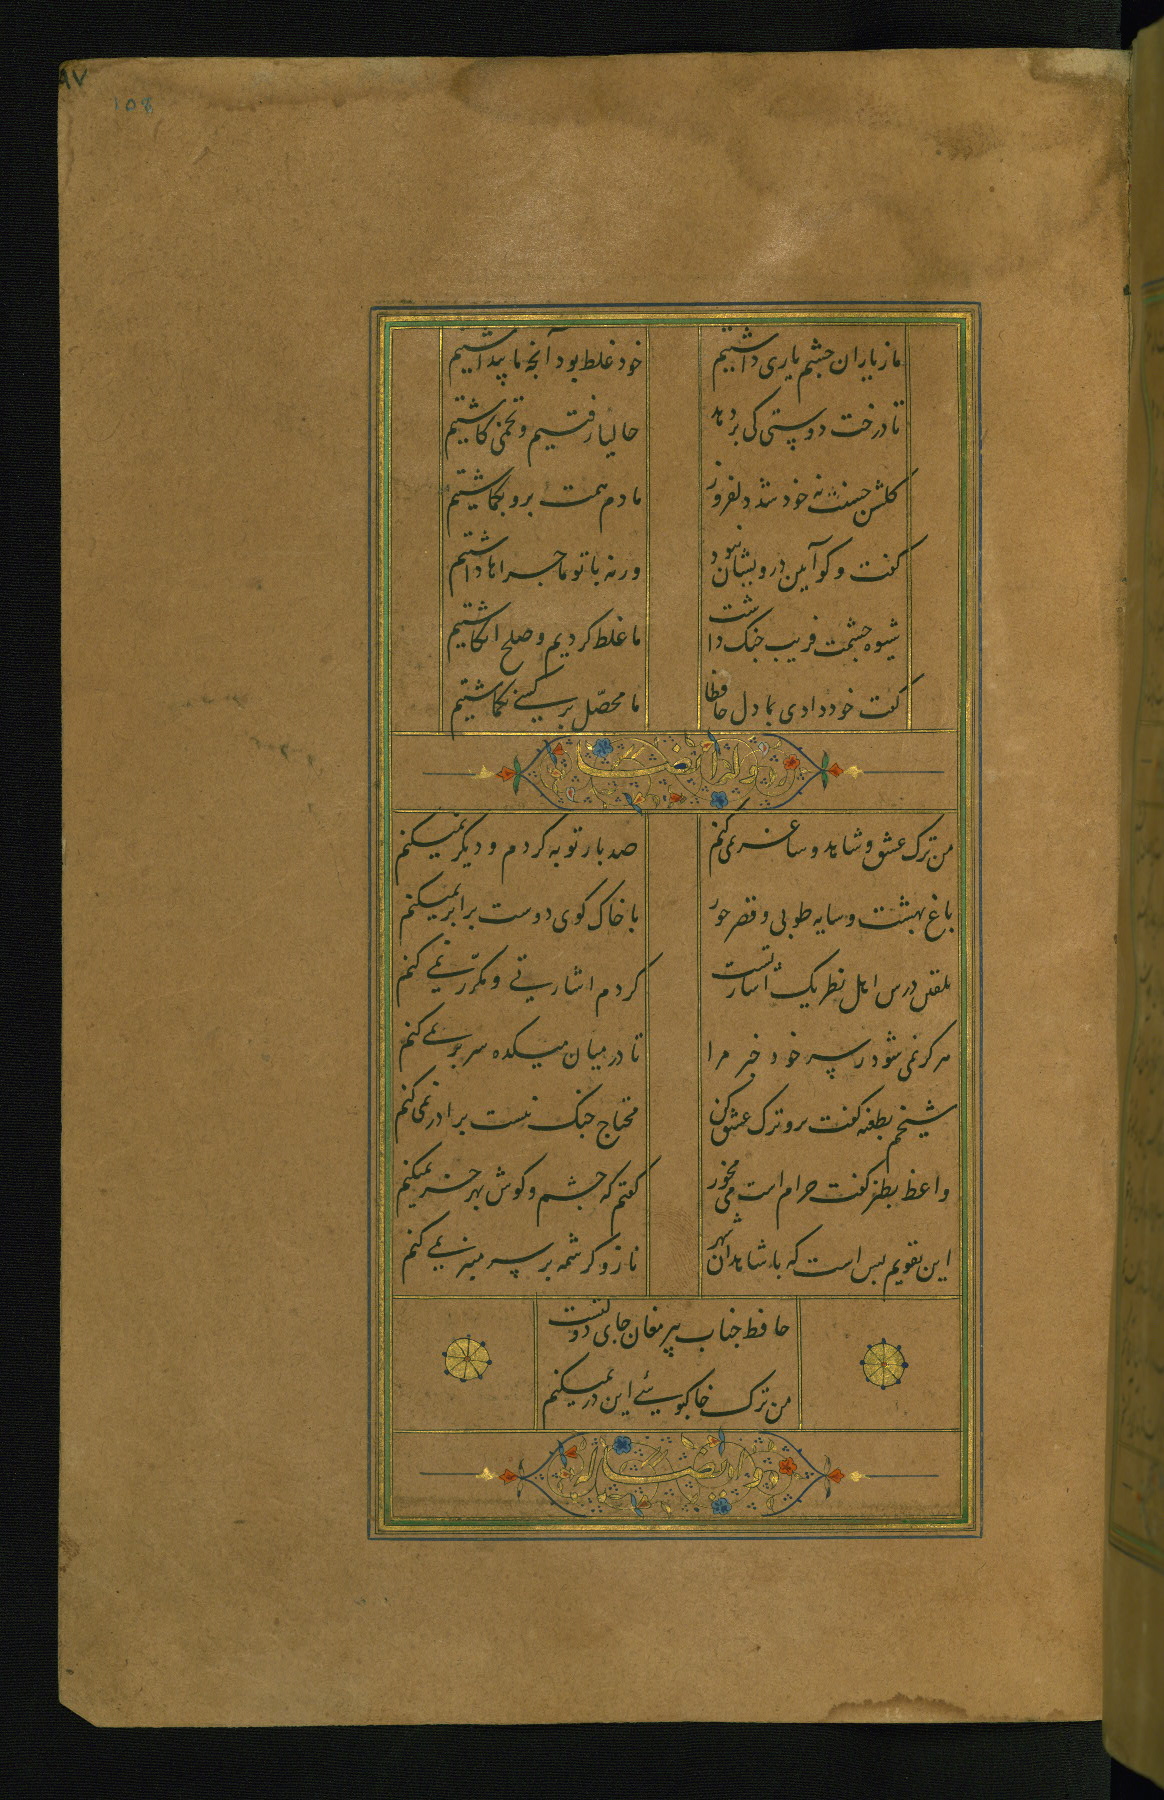 ٩٧
108
ما ز یاران چشم یاری داشتیم
خود غلط بود آنچه ما پنداشتیم
تا درخت دوستی کی بر دهد
حالیا رفتیم و تخمی کاشتیم
گلشن حسنت نه خود شد دلفروز
ما دم همت برو بگماشتیم
گفت و گو آیین درویشان نبود
ورنه با تو ماجراها داشتیم
شیوه چشمت فریب جنگ داشت
ما غلط کردیم و صلح انگاشتیم
گفت خود دادی بما دل حافظا
ما محصّل بر کسی نگماشتیم
وله ایضا
من ترک عشق و شاهد و ساغر نمی‌کنم
صد بار توبه کردم و دیگر نمیکنم
باغ بهشت و سایه طوبی و قصر حور
با خاک کوی دوست برابر نمیکنم
تلقین درس اهل نظر یک اشارتست
کردم اشارتی و مکرّر نمی کنم
هرگز نمی شود ز سر خود خبر مرا
تا در میان میکده سر بر نمی کنم
شیخم بطعنه گفت برو ترک عشق کن
محتاج جنگ نیست برادر نمی کنم
واعظ بطنز گفت حرام است می مخور
گفتم که چشم و گوش بهر خر نمیکنم
این تقویم بس است که با شاهدان شهر
ناز و کرشمه بر سر منبر نمی کنم
حافظ جناب پیر مغان جای دولتست
من ترک خاکبوسی این در نمیکنم
وله ایضا